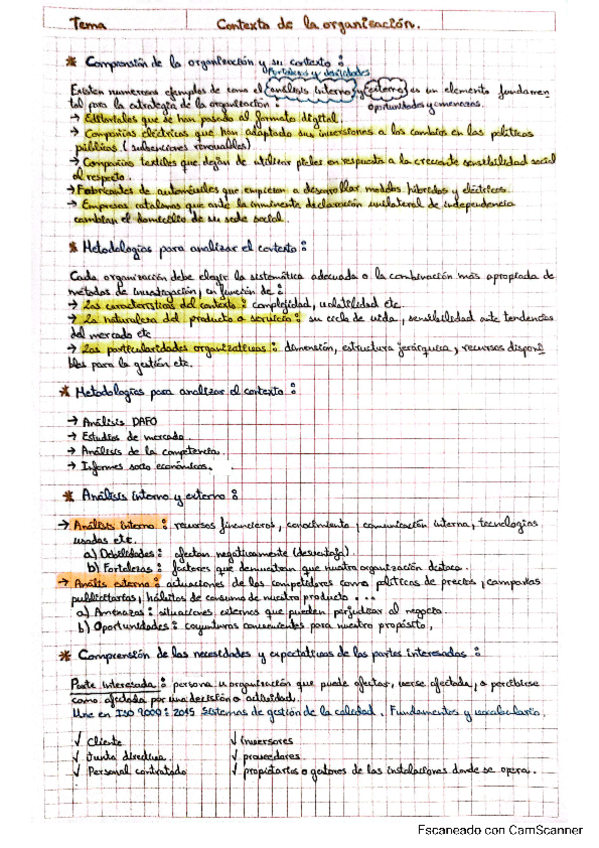 Tema Contexto de la organización.
* Comprensión de la organización y su contexto :
fortalezas y debilidades
Existen numerosos ejemplos de como el análisis interno y externo es un elemento fundamen
tal para la estrategia de la organización : oportunidades y amenazas.
→ Editoriales que se han pasado al formato digital.
→ Compañías eléctricas que han adaptado sus inversiones a los cambios en las políticas
públicas. ( subvenciones renovables)
→ Compañías textiles que dejan de utilizar pieles en respuesta a la creciente sensibilidad social
al respecto.
→ Fabricantes de automóviles que empiezan a desarrollar modelos híbridos y eléctricos.
→ Empresas catalanas que ante la inminente declaración unilateral de independencia
cambian el domicilio de su sede social.
* Metodologías para analizar el contexto :
Cada organización debe elegir la sistemática adecuada o la combinación más apropiada de
métodos de investigación, en función de :
→ Las características del contexto : complejidad, volatilidad etc.
→ La naturaleza del producto o servicio : su ciclo de vida, sensibilidad ante tendencias
del mercado etc
→ Las particularidades organizativas : dimensión, estructura jerárquica, recursos disponi
bles para la gestión etc.
* Metodologías para analizar el contexto :
→ Análisis DAFO
→ Estudios de mercado.
→ Análisis de la competencia.
→ Informes socio económicos.
* Análisis interno y externo :
→ Análisis interno : recursos financieros, conocimiento, comunicación interna, tecnologías
usadas etc.
a) Debilidades : afectan negativamente (desventaja).
b) Fortalezas : factores que demuestran que nuestra organización destaca.
→ Análisis externo : actuaciones de los competidores como políticas de precios, campañas
publicitarias, hábitos de consumo de nuestro producto ...
a) Amenazas : situaciones externas que pueden perjudicar al negocio.
b) Oportunidades : coyunturas convenientes para nuestro propósito,
* Comprensión de las necesidades y expectativas de las partes interesadas :
Parte interesada : persona u organización que puede afectar, verse afectada, o percibirse
como afectada por una decisión o actividad.
Une en ISO 9000 : 2015 Sistemas de gestión de la calidad. Fundamentos y vocabulario.
√ Cliente √ inversores
√ Junta directiva √ proveedores.
√ Personal contratado √ propietarios o gestores de las instalaciones donde se opera.
Escaneado con CamScanner